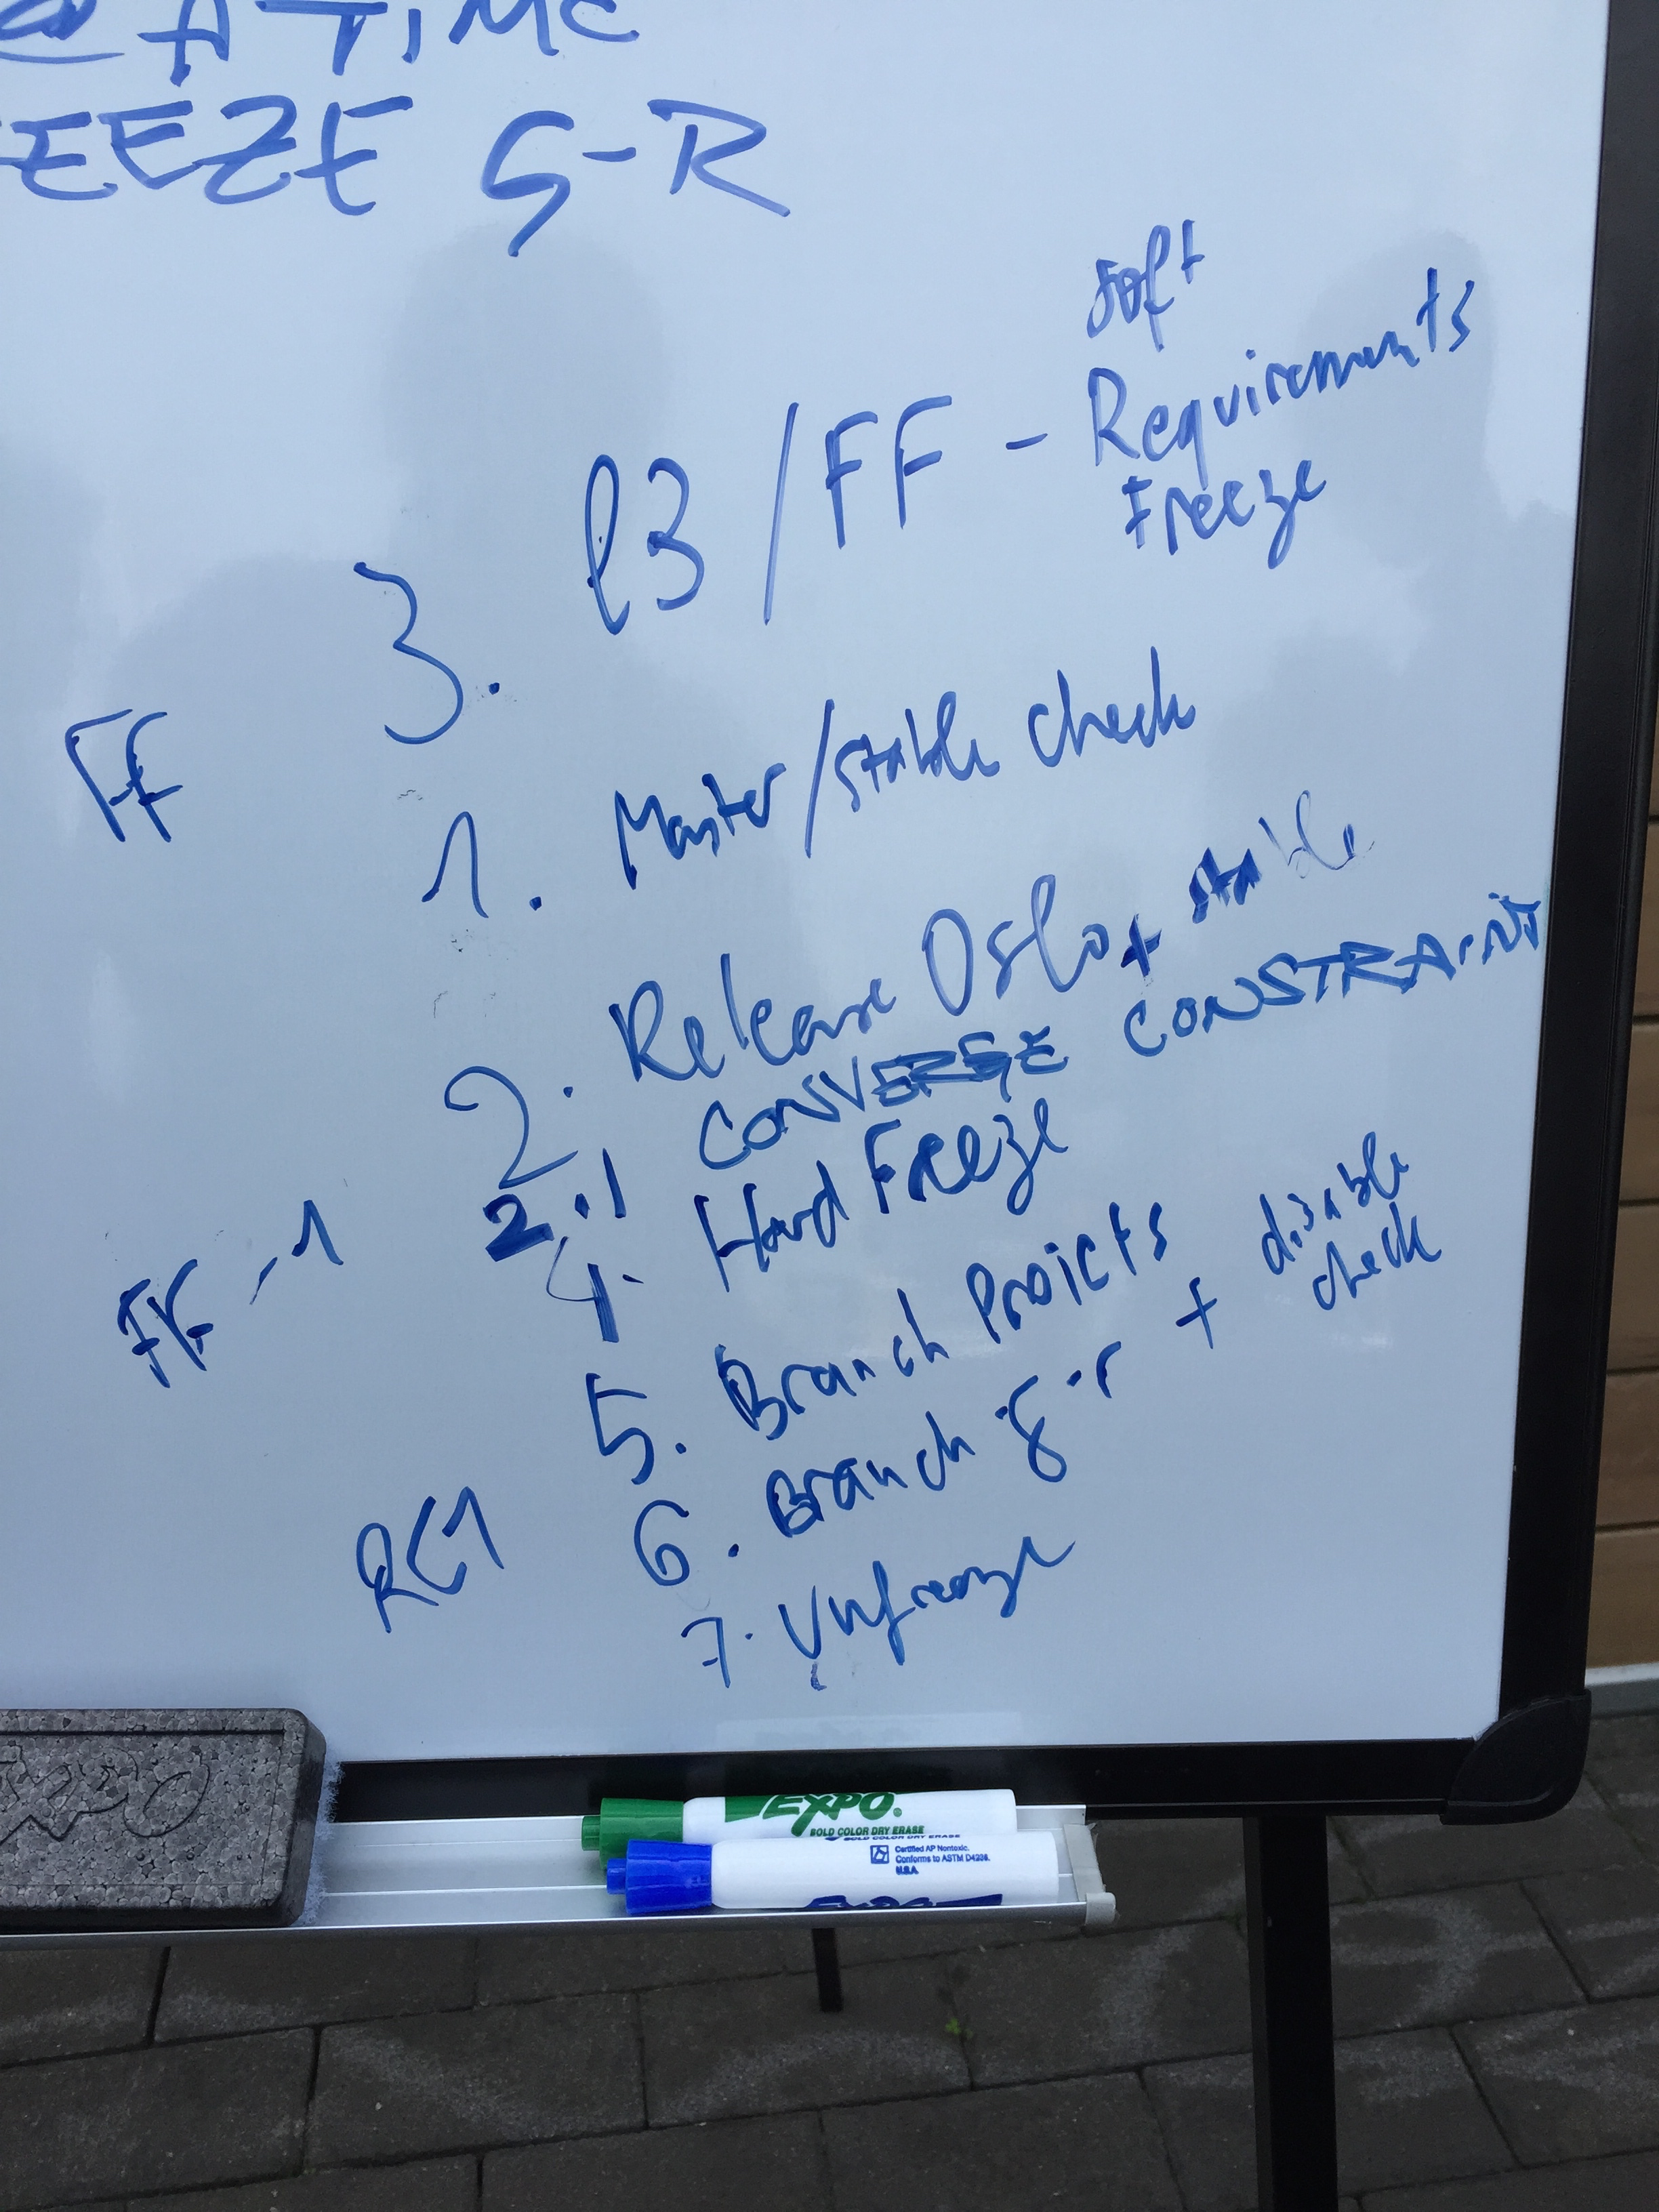 @ A TIME
EEZE G-R
soft
3. l3/FF - Requirements
Freeze
FF
1. Master/stable check
2. Release Oslo + stable
2.1 CONVERGE CONSTRAINT
FF-1
4. Hard Freeze
5. Branch Projects
6. Branch g-r + disable
check
RC1
7. Unfreeze
EXPO
EXPO.
BOLD COLOR DRY ERASE
Certified AP Nontoxic.
Conforms to ASTM D4236.
EXPO